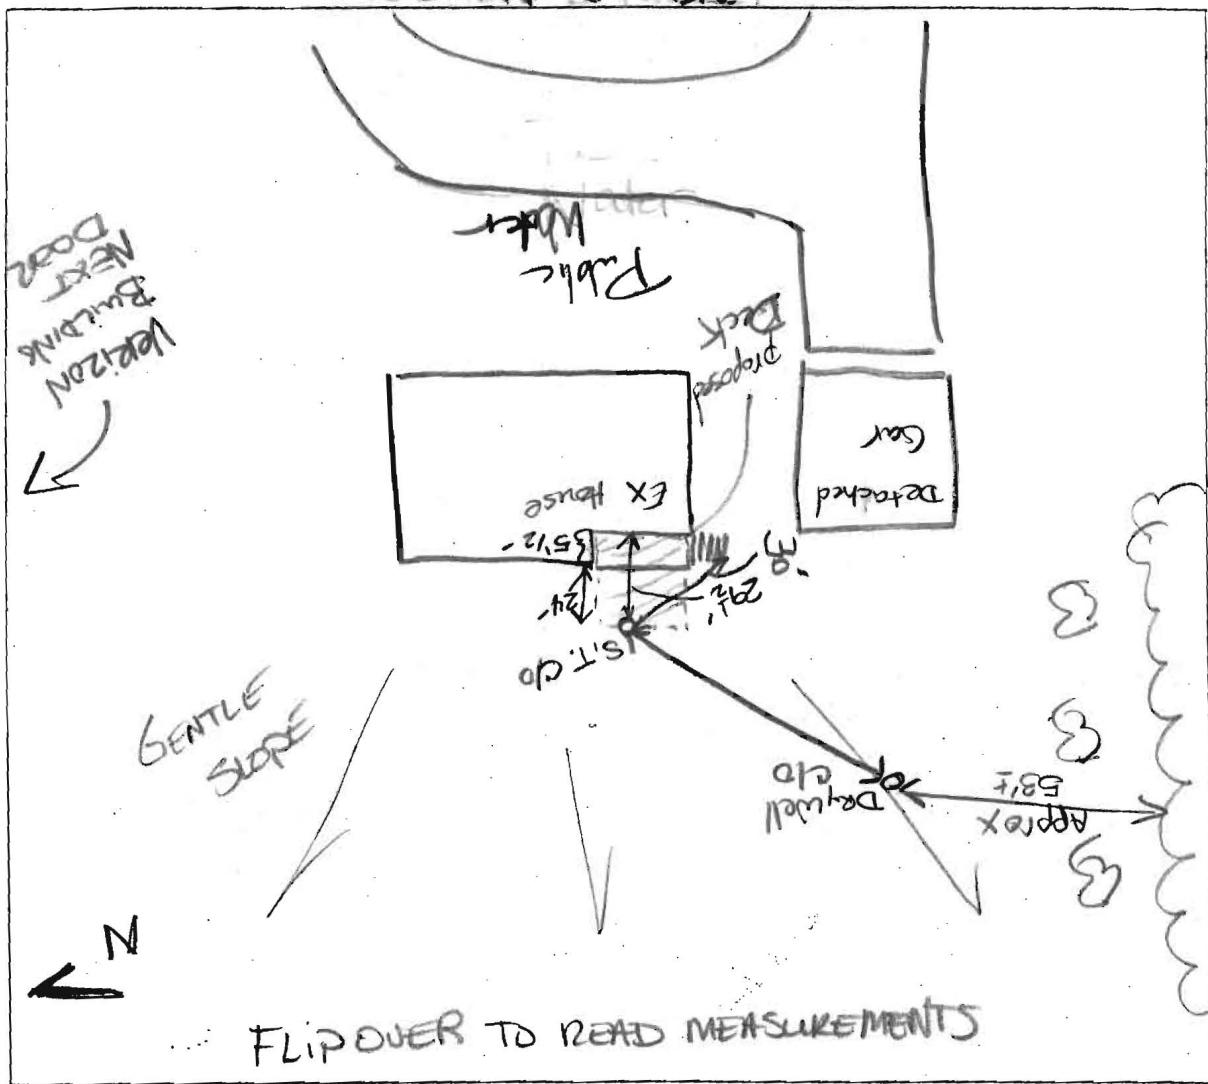 Public
Water
VERIZON
BUILDING
NEXT
DOOR
proposed
Deck
Detached
Gar
EX
House
5½'
24'
29½'
S.T. c/o
GENTLE
SLOPE
Drywell
c/o
Approx
53'±
N
FLIP OVER TO READ MEASUREMENTS